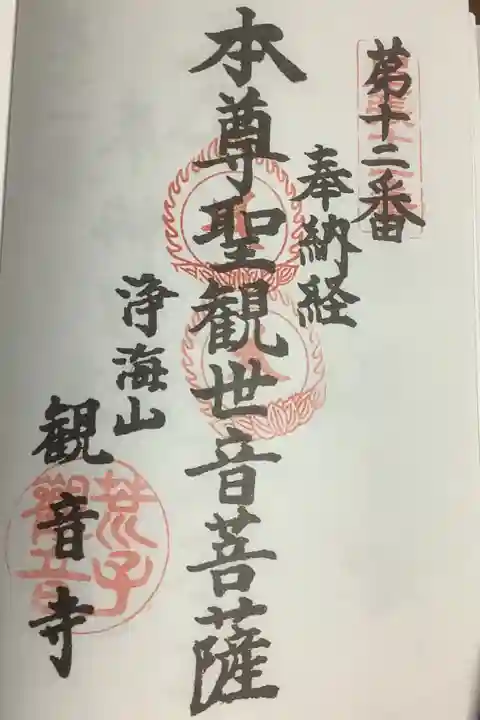 第十二番
奉納経
本尊聖観世音菩薩
浄海山
観音寺
荒子
觀音